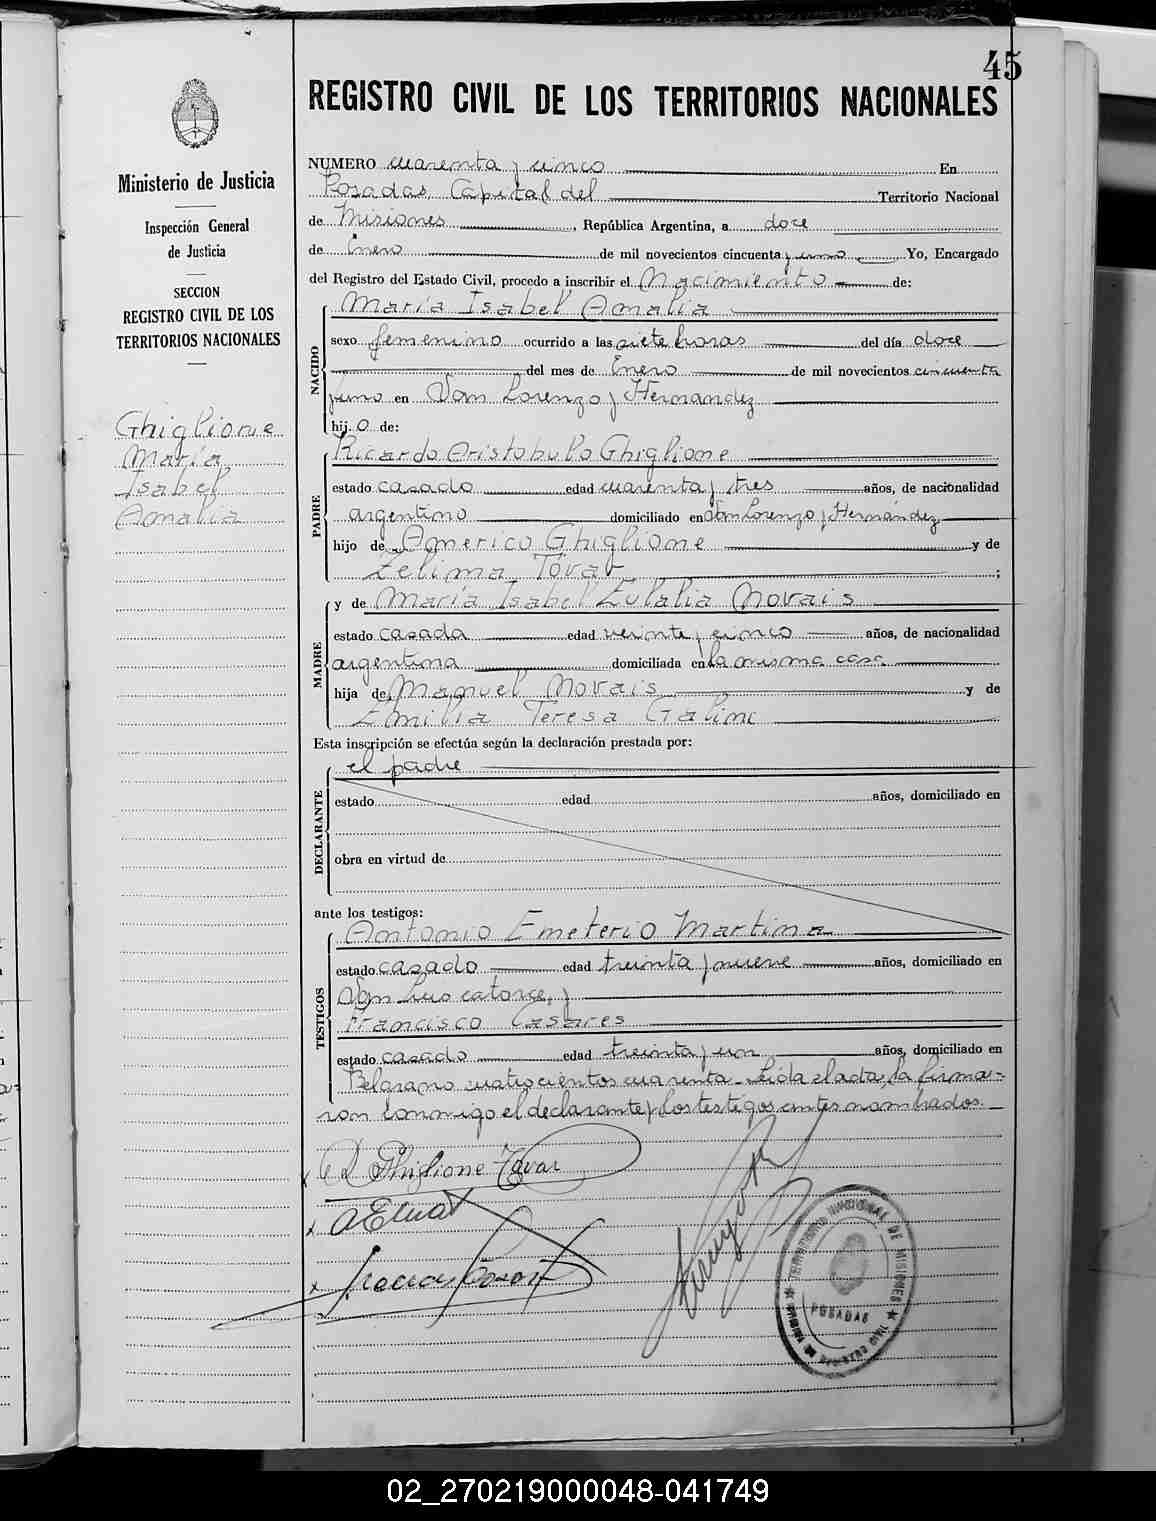 45
REGISTRO CIVIL DE LOS TERRITORIOS NACIONALES
Ministerio de Justicia
Inspección General
de Justicia
SECCION
REGISTRO CIVIL DE LOS
TERRITORIOS NACIONALES
Ghiglione
María
Isabel
Amalia
NUMERO cuarenta y cinco En
Posadas, Capital del Territorio Nacional
de Misiones, República Argentina, a doce
de Enero de mil novecientos cincuenta y uno Yo, Encargado
del Registro del Estado Civil, procedo a inscribir el Nacimiento de:
NACIDO
María Isabel Amalia
sexo femenino ocurrido a las siete horas del día doce
del mes de Enero de mil novecientos cincuenta
y uno en San Lorenzo y Hernandez
hij o de:
PADRE
Ricardo Aristobulo Ghiglione
estado casado edad cuarenta y tres años, de nacionalidad
argentino domiciliado en San Lorenzo y Hernández
hijo de Americo Ghiglione y de
Zelima Tovar ;
MADRE
y de María Isabel Eulalia Novais
estado casada edad veinte y cinco años, de nacionalidad
argentina domiciliada en la misma casa
hija de Manuel Novais y de
Emilia Teresa Galino
Esta inscripción se efectúa según la declaración prestada por:
DECLARANTE
el padre
estado edad años, domiciliado en
obra en virtud de
ante los testigos:
TESTIGOS
Antonio Emeterio Martina
estado casado edad treinta y nueve años, domiciliado en
San Luis catorce, y
Francisco Casares
estado casado edad treinta y un años, domiciliado en
Belgrano cuatrocientos cuarenta. Leida el acta, la firma-
ron conmigo el declarante y los testigos antes nombrados.
R Ghiglione Tovar
TERRITORIO NACIONAL DE MISIONES
POSADAS
02_270219000048-041749